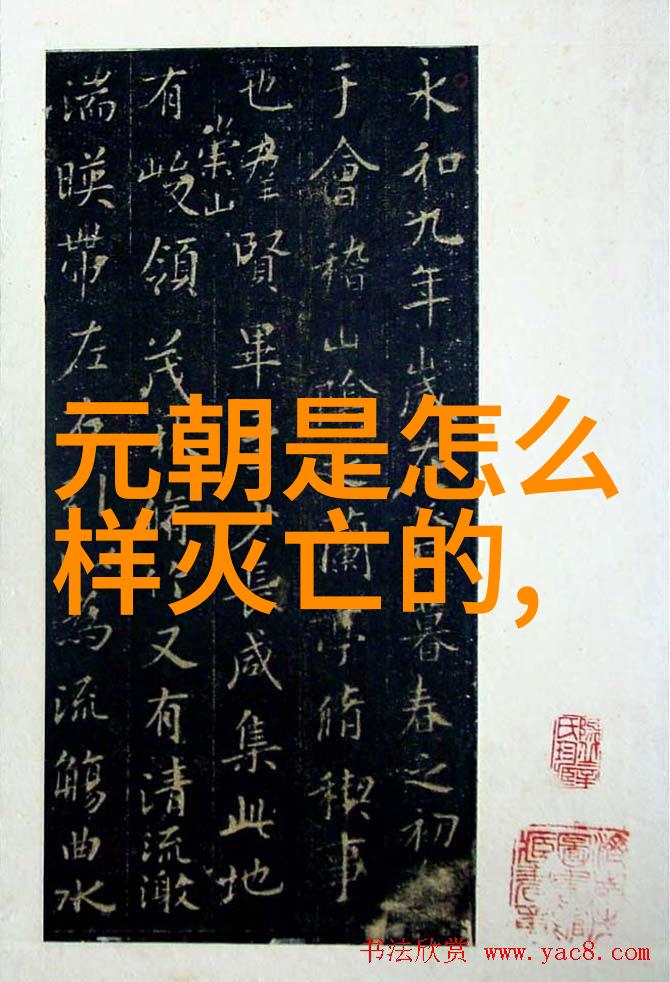 元朝是怎么
样灭亡的,
永和九年歲暮春之初
于會稽山陰蘭亭脩禊事
也羣賢畢少長咸集此地
有崇山峻領茂林又有清流激
湍暎帶左右為流觴曲水
书法欣赏 www.yac8.com